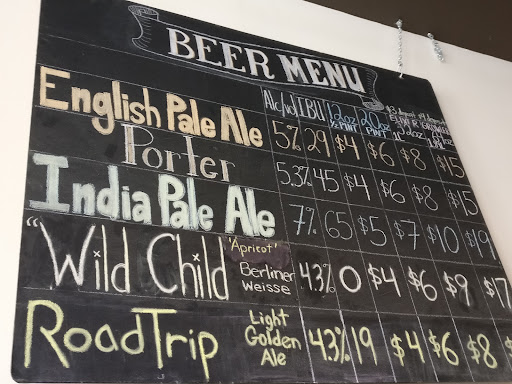 BEER MENU
Alc/vol IBU 12oz ½ PINT 20oz PINT
English Pale Ale 5% 29 $4 $6 $8 $15
Porter 5.3% 45 $4 $6 $8 $15
India Pale Ale 7% 65 $5 $7 $10 $19
"Wild Child 'Apricot' Berliner weisse 4.3% 0 $4 $6 $9 $17
Road Trip Light Golden Ale 4.3% 19 $4 $6 $8